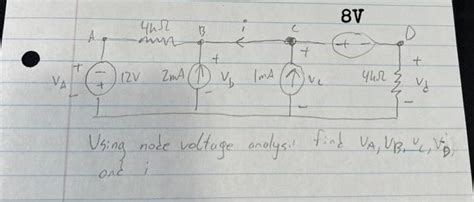 8V
A 4kΩ B i C D
+ + + + − +
V_A − + 12V 2mA V_b 1mA V_c 4kΩ V_d
− − − −
Using node voltage analysis find V_A, V_B, V_C, V_D,
and i